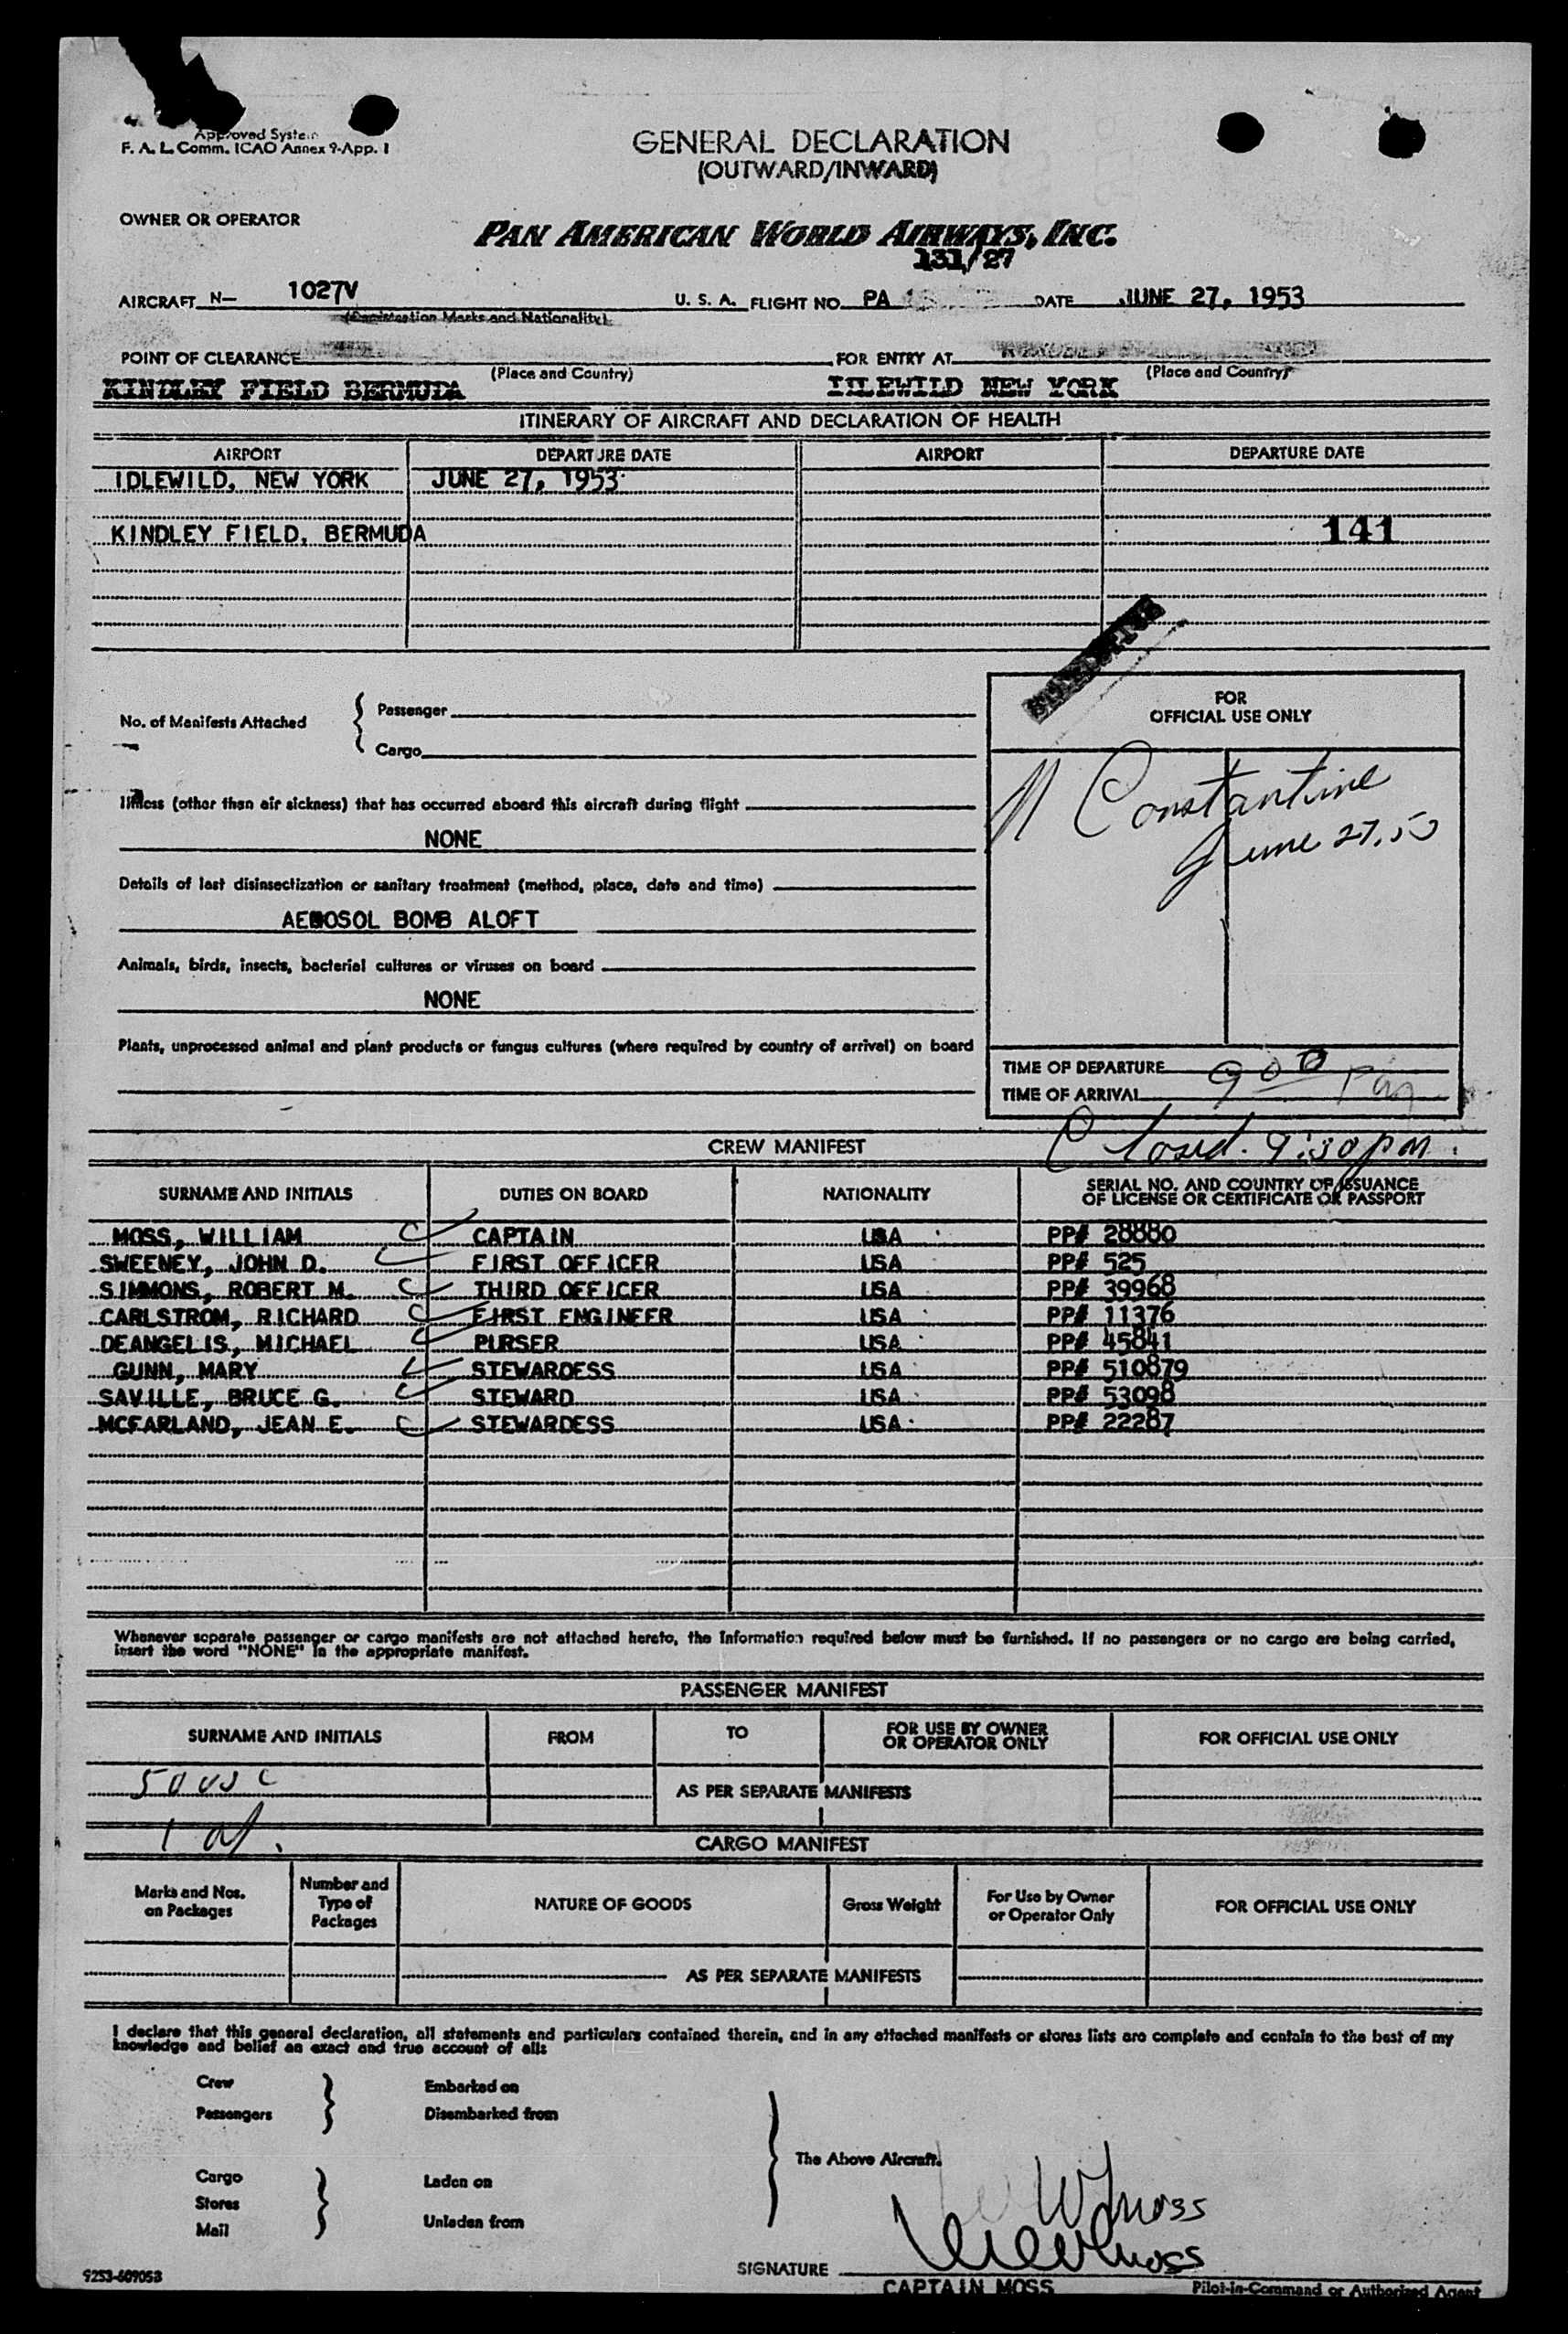 Approved System
F. A. L. Comm. ICAO Annex 9-App. I
GENERAL DECLARATION
(OUTWARD/INWARD)
OWNER OR OPERATOR
PAN AMERICAN WORLD AIRWAYS, INC.
131/27
AIRCRAFT N- 1027V U. S. A. FLIGHT NO. PA DATE JUNE 27, 1953
(Registration Marks and Nationality)
POINT OF CLEARANCE FOR ENTRY AT
(Place and Country) (Place and Country)
KINDLEY FIELD BERMUDA IDLEWILD NEW YORK
ITINERARY OF AIRCRAFT AND DECLARATION OF HEALTH
AIRPORT DEPARTURE DATE AIRPORT DEPARTURE DATE
IDLEWILD, NEW YORK JUNE 27, 1953
KINDLEY FIELD, BERMUDA 141
No. of Manifests Attached
Passenger
Cargo
FOR
OFFICIAL USE ONLY
Constantine
June 27, 53
Illness (other than air sickness) that has occurred aboard this aircraft during flight
NONE
Details of last disinsectization or sanitary treatment (method, place, date and time)
AEROSOL BOMB ALOFT
Animals, birds, insects, bacterial cultures or viruses on board
NONE
Plants, unprocessed animal and plant products or fungus cultures (where required by country of arrival) on board
TIME OF DEPARTURE
TIME OF ARRIVAL 9 00 PM
Closed. 9:30 pm.
CREW MANIFEST
SURNAME AND INITIALS DUTIES ON BOARD NATIONALITY SERIAL NO. AND COUNTRY OF ISSUANCE
OF LICENSE OR CERTIFICATE OR PASSPORT
MOSS, WILLIAM C CAPTAIN USA PP# 28880
SWEENEY, JOHN D. C FIRST OFFICER USA PP# 525
SIMMONS, ROBERT M. C THIRD OFFICER USA PP# 39968
CARLSTROM, RICHARD C FIRST ENGINEER USA PP# 11376
DEANGELIS, MICHAEL C PURSER USA PP# 45841
GUNN, MARY C STEWARDESS USA PP# 510879
SAVILLE, BRUCE G. C STEWARD USA PP# 53098
MCFARLAND, JEAN E. C STEWARDESS USA PP# 22287
Whenever separate passenger or cargo manifests are not attached hereto, the information required below must be furnished. If no passengers or no cargo are being carried,
insert the word "NONE" in the appropriate manifest.
PASSENGER MANIFEST
SURNAME AND INITIALS FROM TO FOR USE BY OWNER
OR OPERATOR ONLY FOR OFFICIAL USE ONLY
50 USC
AS PER SEPARATE MANIFESTS
1 al.
CARGO MANIFEST
Marks and Nos.
on Packages
Number and
Type of
Packages
NATURE OF GOODS
Gross Weight
For Use by Owner
or Operator Only
FOR OFFICIAL USE ONLY
AS PER SEPARATE MANIFESTS
I declare that this general declaration, all statements and particulars contained therein, and in any attached manifests or stores lists are complete and contain to the best of my
knowledge and belief an exact and true account of all:
Crew Embarked on
Passengers Disembarked from
The Above Aircraft.
Cargo Laden on
Stores
Mail Unladen from
W Moss
SIGNATURE Wm Moss
CAPTAIN MOSS Pilot-in-Command or Authorized Agent
9253-609053